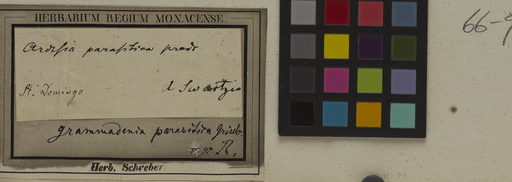 HERBARIUM REGIUM MONACENSE.
Ardisia parasitica
St. Domingo
d Swartzio
Grammadenia parasitica Griseb.
R,
Herb. Schreber.
66-